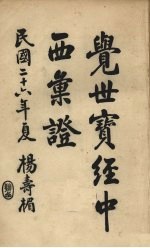 覺世寶經中
西彙證
民國二十六年夏 楊壽楣